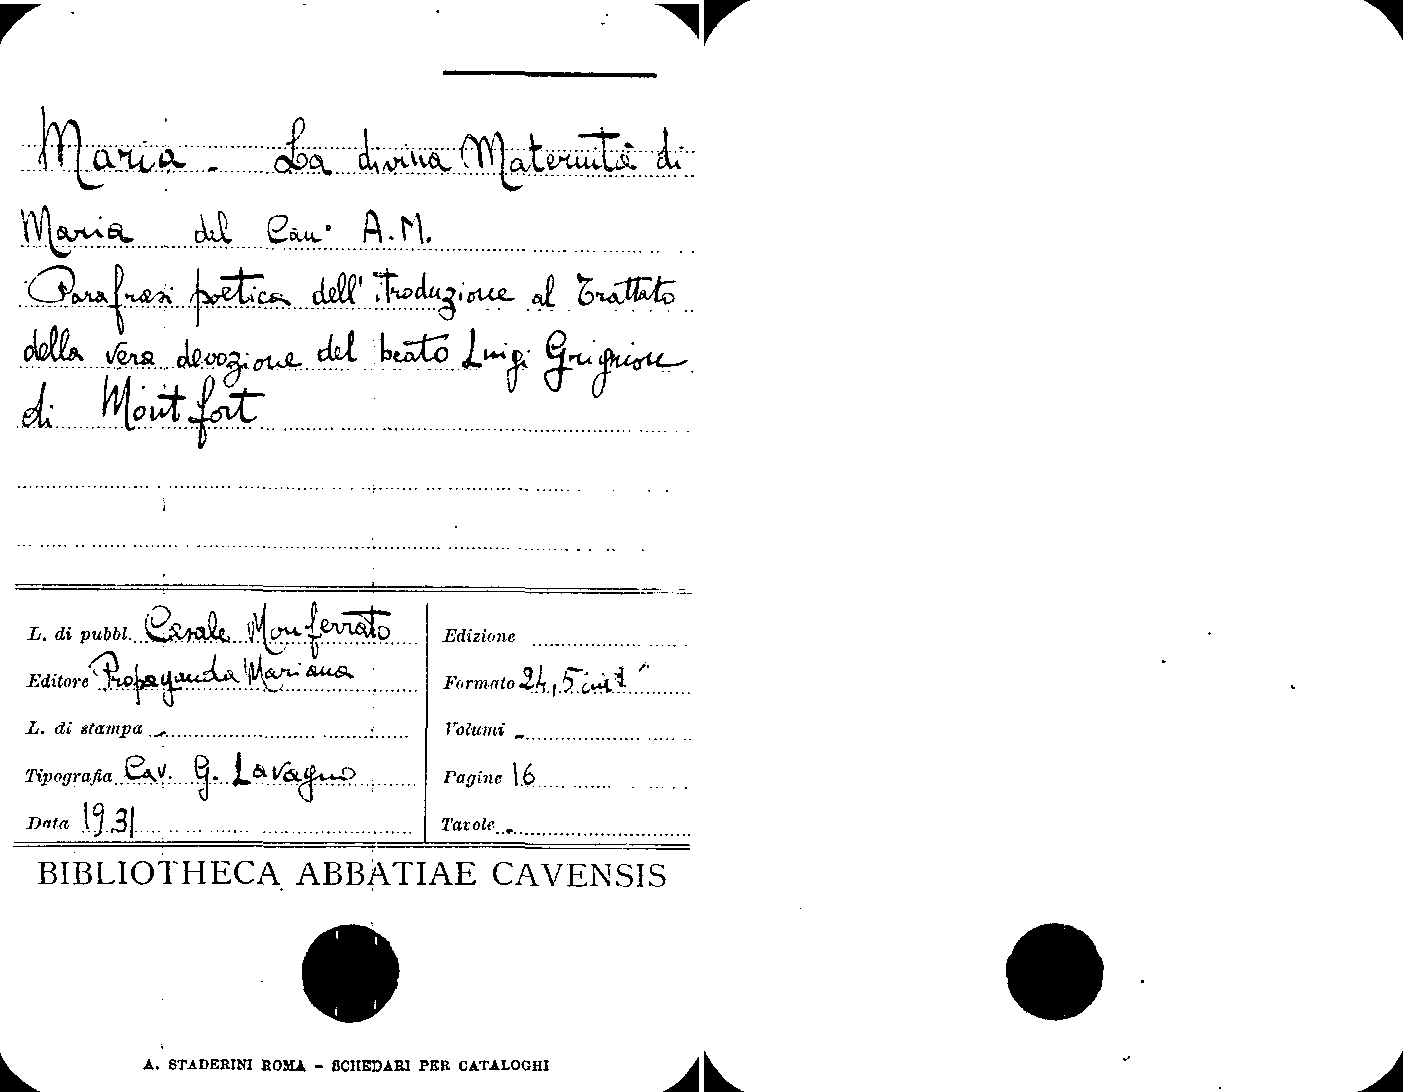 Maria - La divina Maternità di
Maria del Can.º A.M.
Parafrasi poetica dell'itroduzione al Trattato
della vera devozione del beato Luigi Grignion
di Montfort
L. di pubbl. Casale Monferrato
Editore Propaganda Mariana
L. di stampa -
Tipografia Cav. G. Lavagno
Data 1931
Edizione
Formato 24,5
Volumi -
Pagine 16
Tavole -
BIBLIOTHECA ABBATIAE CAVENSIS
A. STADERINI ROMA - SCHEDARI PER CATALOGHI